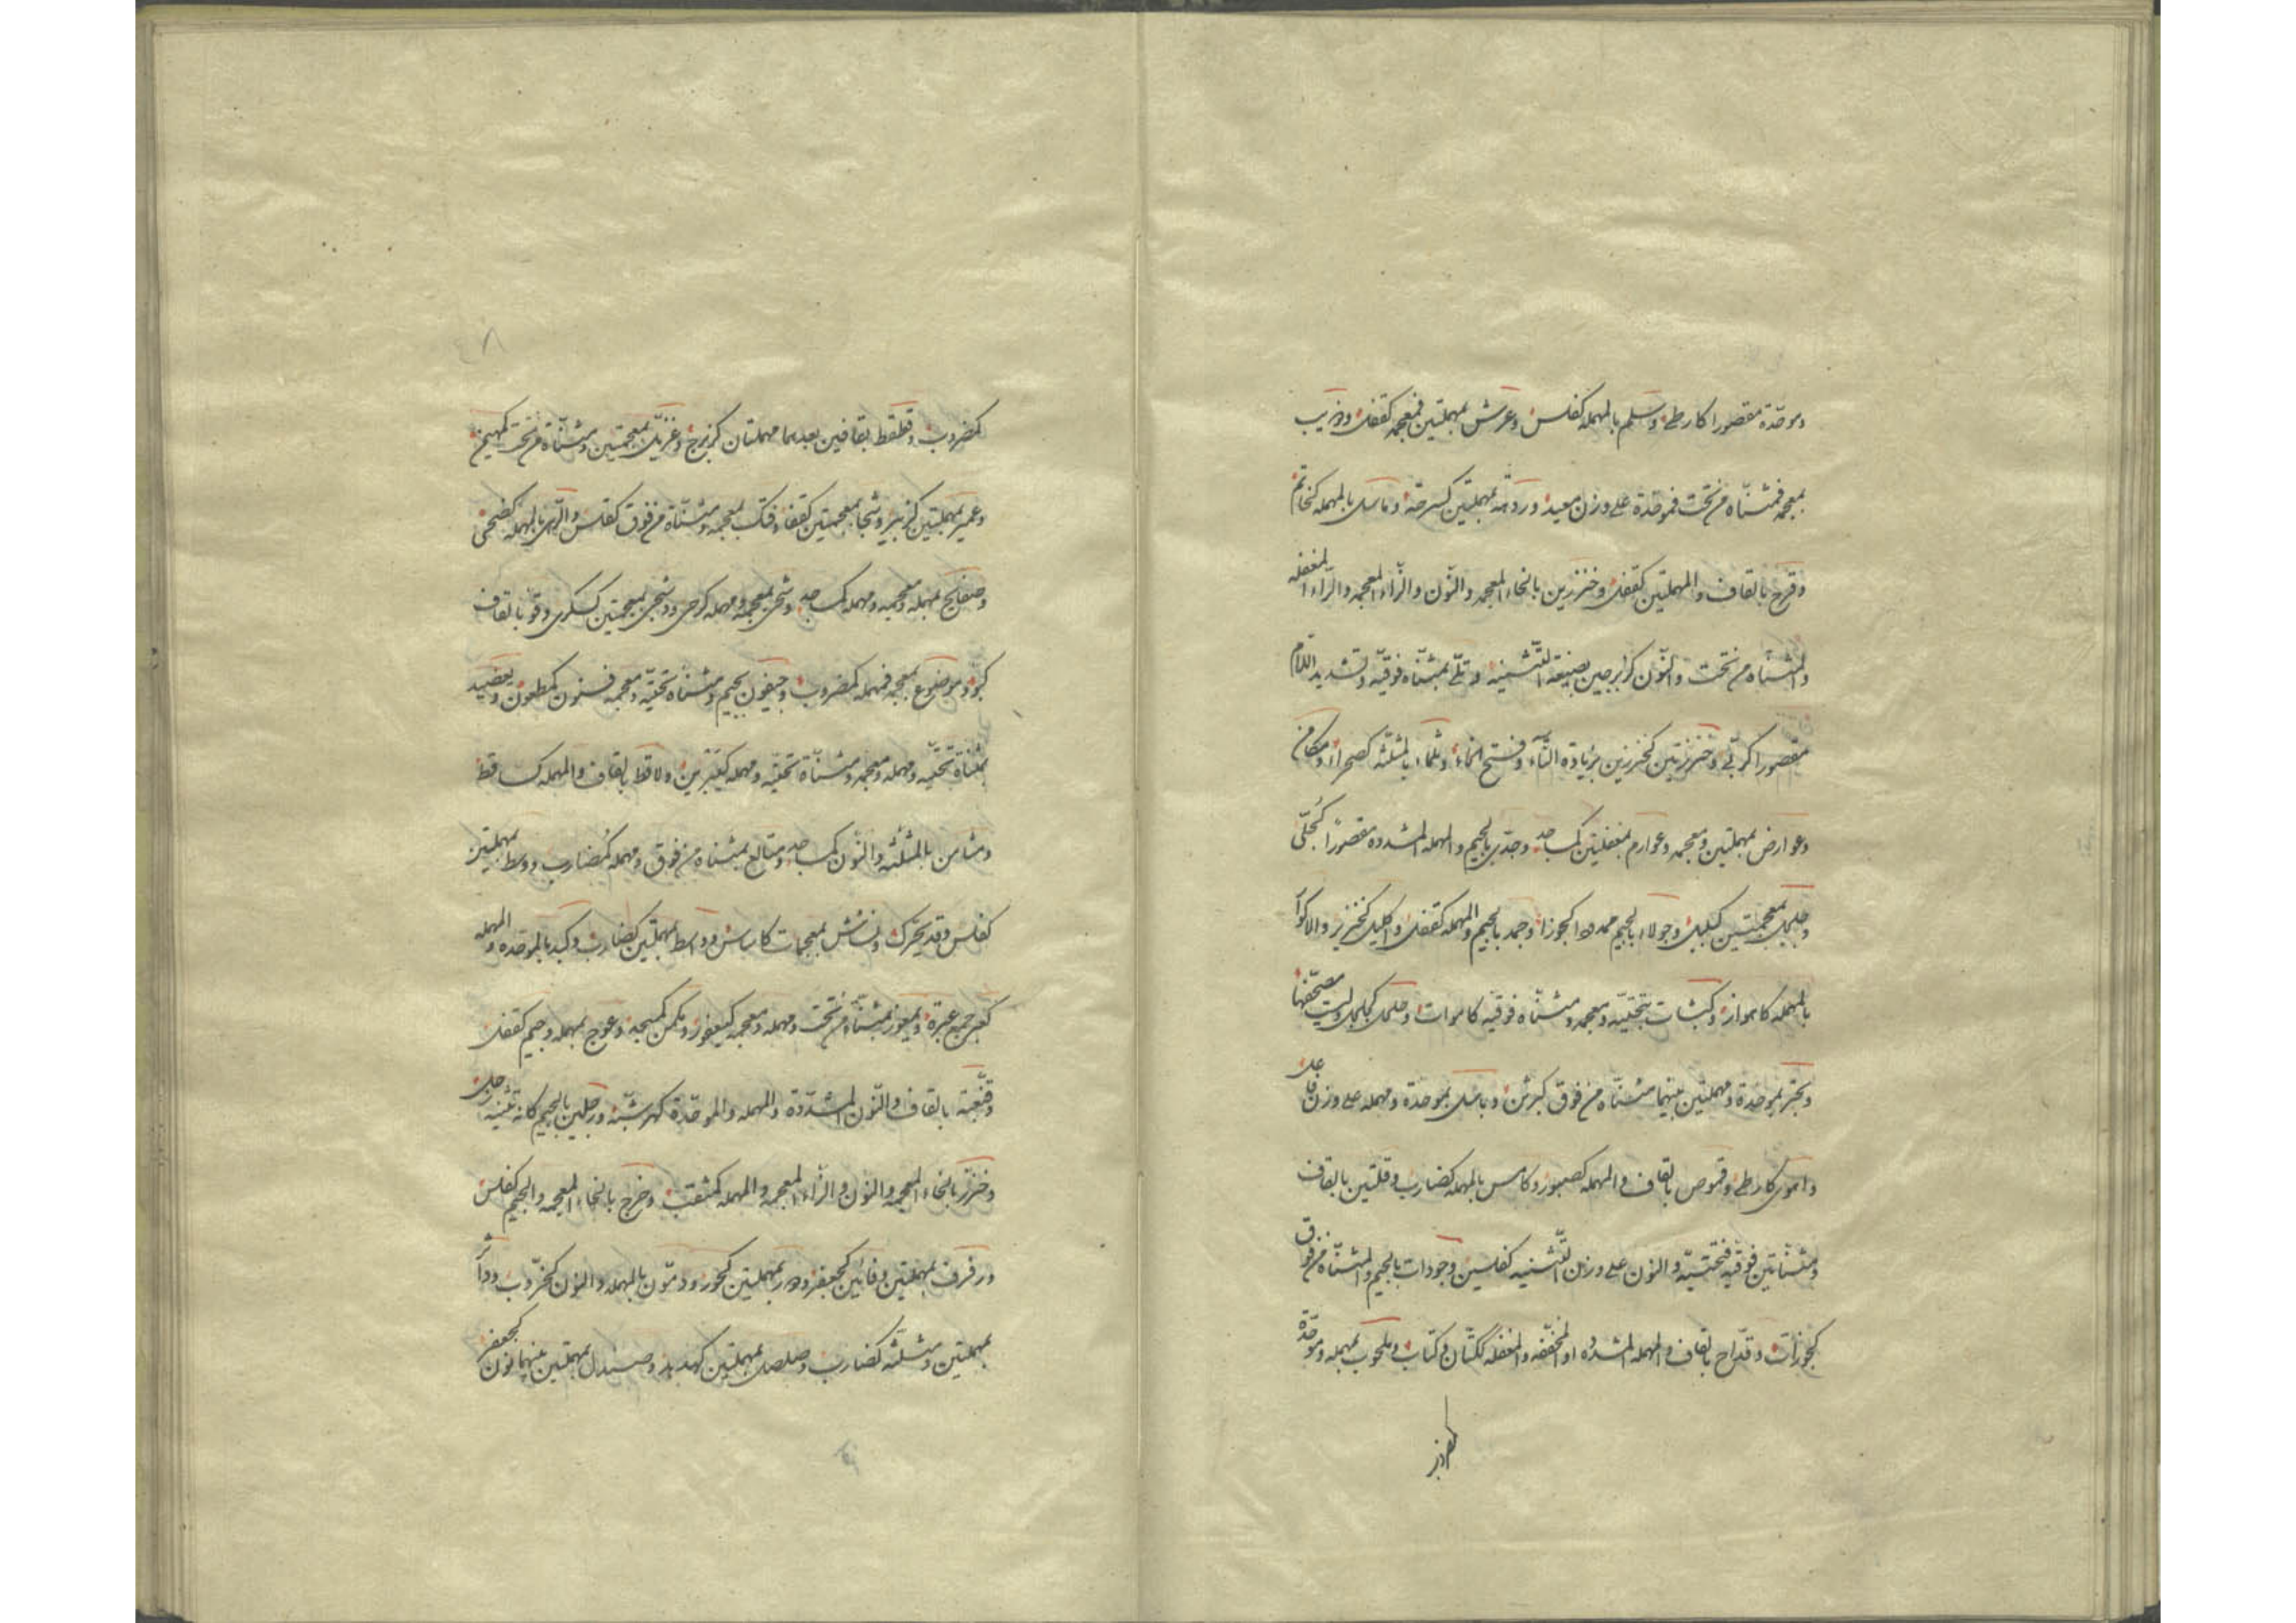 وموحّدة مقصورا كارطى وسلم بالمهملة كفلس وعرش بمهملتين فمعجمه كقفل وذريب
بمعجمه فمثنّاه من تحت فموحّدة على وزن معيد وردهة بمهملتين كسرحة وماسل بالمهمله كخاتم
وقرح بالقاف والمهملتين كقفل وخنزرين بالخاء المعجمه والنّون والزّاء المعجمه والرّاء المغفله
والمثنّاه من تحت والنّون كزبرجين بصيغة التّثنيه وتلّى بمثنّاه فوقيّه وتشديد اللّام
مقصوراً كربّى وخنزرتين كخنزرين بزيادة التّاء وفتح الخاء وثلماء بالمثلّثه كصحراء ومكامن
وعوارض بمهملتين ومعجمه وعوارم بمغفلتين كمساجد وجدّى بالجيم والمهمله المشدده مقصوراً كجلّى
بمعجمتين كبلبل وجولاء بالجيم ممدودا كجوزاء وجمد بالجيم والمهمله كقفل واكليل كخنزير والاكوار
بالمهمله كاهواز وكبشات بتحتيّه ومعجمه ومثنّاه فوقيّه كاموات وليت مصحّفها
وبحتر بموحّدة ومهملتين بينهما مثنّاه من فوق كبرثن وباسل بموحّدة ومهمله على وزن فاعل
واموى كارطى وقموص بالقاف والمهمله كصبور وكامس بالمهمله كضارب وقلتين بالقاف
ومثنّاتين فوقيّه فتحتيّه والنون على وزن التّثنيه كفلسين وجودات بالجيم والمثنّاه من فوق
كجوزات وقدّاح بالقاف والمهمله المشدّده او المخفّفه والمغفله ككتّان وكتاب وملحوب بمهمله وموحّدة
كمضروب
كمضروب وقطقط بقافين بعدهما مهملتان كزبرج وغزيّل بمعجمتين ومثنّاة من تحت كمهيمن
وعمير بمهملتين كزبير وشجا بمعجمتين كقفا وفتك بمعجمه ومثنّاة من فوق كفلس بالمهمله كضحى
وضفادع بمهمله ومعجمه ومهمله كمساجد بمعجمه ومهمله كرحى بمعجمتين كسكرى وقوّ بالقاف
كبوّ وموضوع بمعجمه فمهمله كمضروب وجيفون بجيم ومثنّاه تحتيّه ومعجمه فنون كمطعون ويعضيد
بمثنّاة تحتيّه ومهمله ومعجمه ومثنّاة تحتيّه ومهمله ولاقط بالقاف والمهمله كساقط
ومثامن بالمثلّثه والنّون كمساجد ومتالع بمثنّاه من فوق ومهمله كمضارب ووسط بمهملتين
كفلس وقد يحرّك بمعجمات وواسط بمهملتين كضارب وكبد بالموحّده والمهمله
كعبر جمع عبرة ويمعوز بمثنّاه من تحت ومهمله ومعجمه كيعفور ومكمن كمسجد وعوج بمهمله وجيم كقفل
وقنّعبة بالقاف والنّون المشدّدة والمهمله والموحّدة كهرشبّة ورجلين بالجيم كانّه تثنيه رجل
وخنزر بالخاء المعجمه والنّون والزّاء المعجمه والمهمله وخرج بالخاء المعجمه والجيم كفلس
ورفرف بمهملتين وفائين كجعفر بمهملتين ودمّون بالمهمله والنون كخرّوب وداثر
بمهملتين ومثلّثه كضارب وصلصل بمهملتين كهدهد وصندل بمهملتين بينهما نون كجعفر